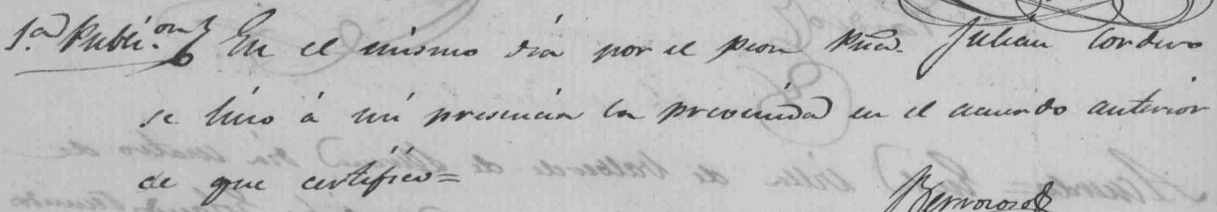 1.ª Publi.on En el mismo dia por el peon puco. Julian Cordero
se hizo á mi presencia la prevenida en el acuerdo anterior
de que certifico=